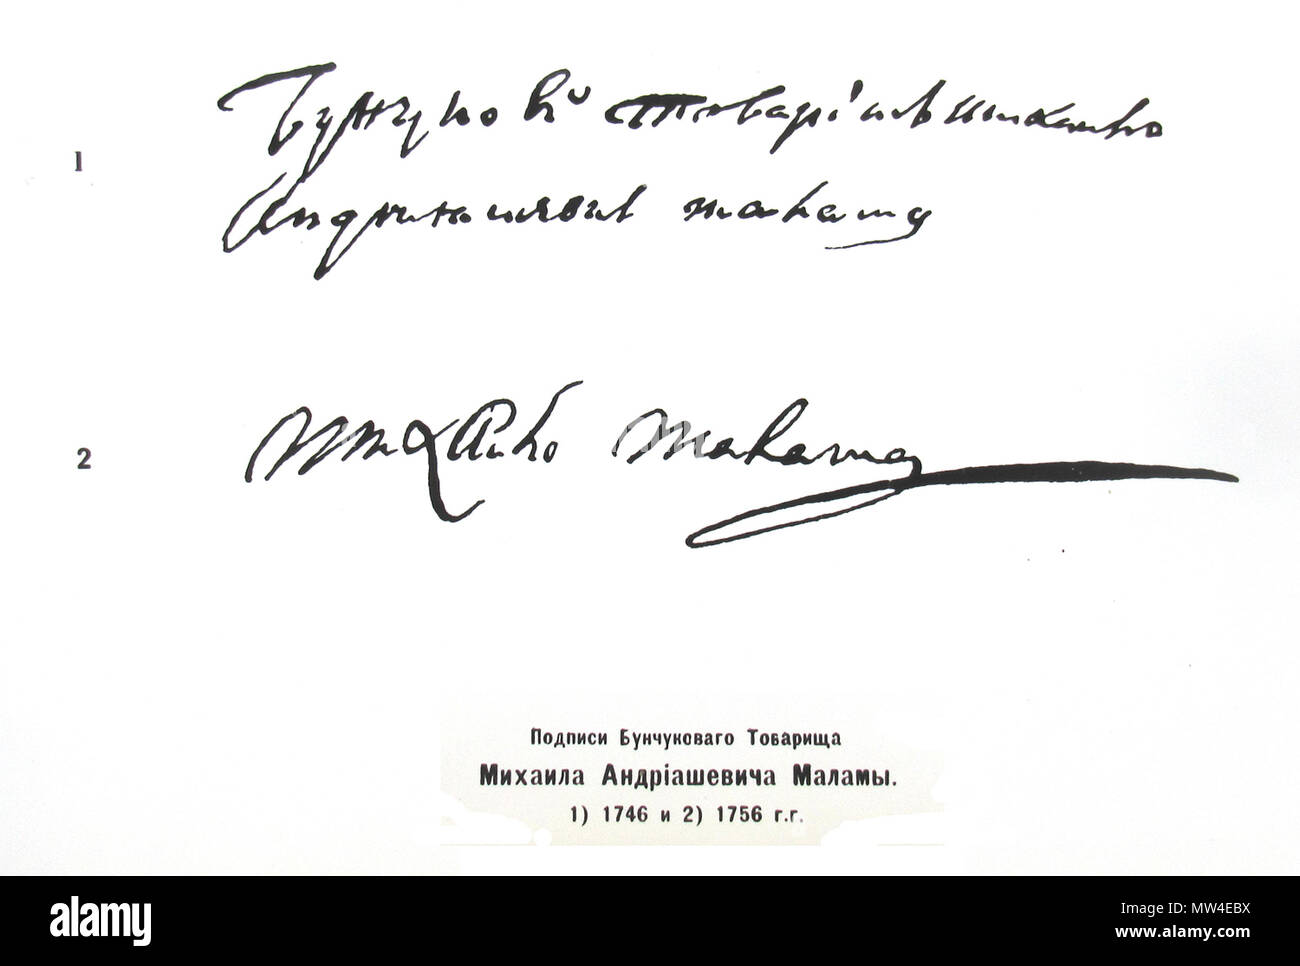 1
Бунчуковй товаріш михаило
Андрияшевич малама
2
Михаило Малама
Подписи Бунчуковаго Товарища
Михаила Андріашевича Маламы.
1) 1746 и 2) 1756 г.г.
alamy
Image ID: MW4EBX
www.alamy.com